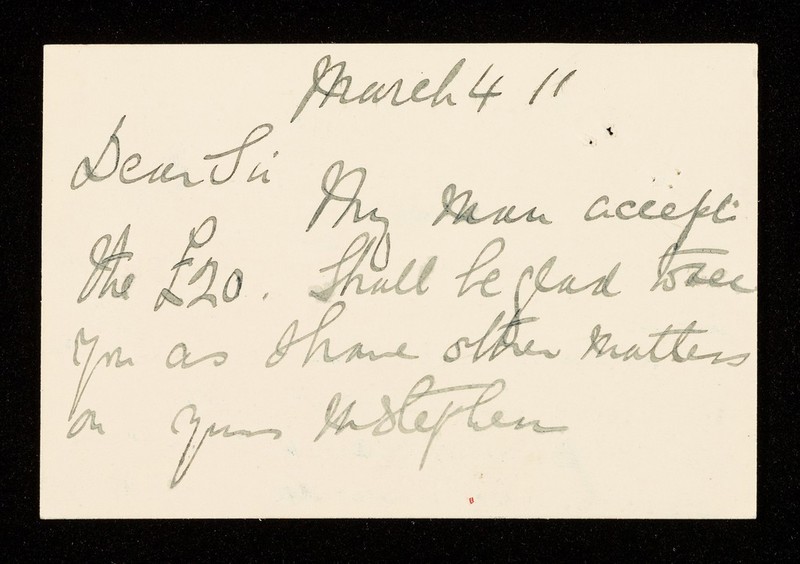 March 4 11
Dear Sir
My man accepts
the £20. Shall be glad to see
you as I have other matters
on yours W Stephen